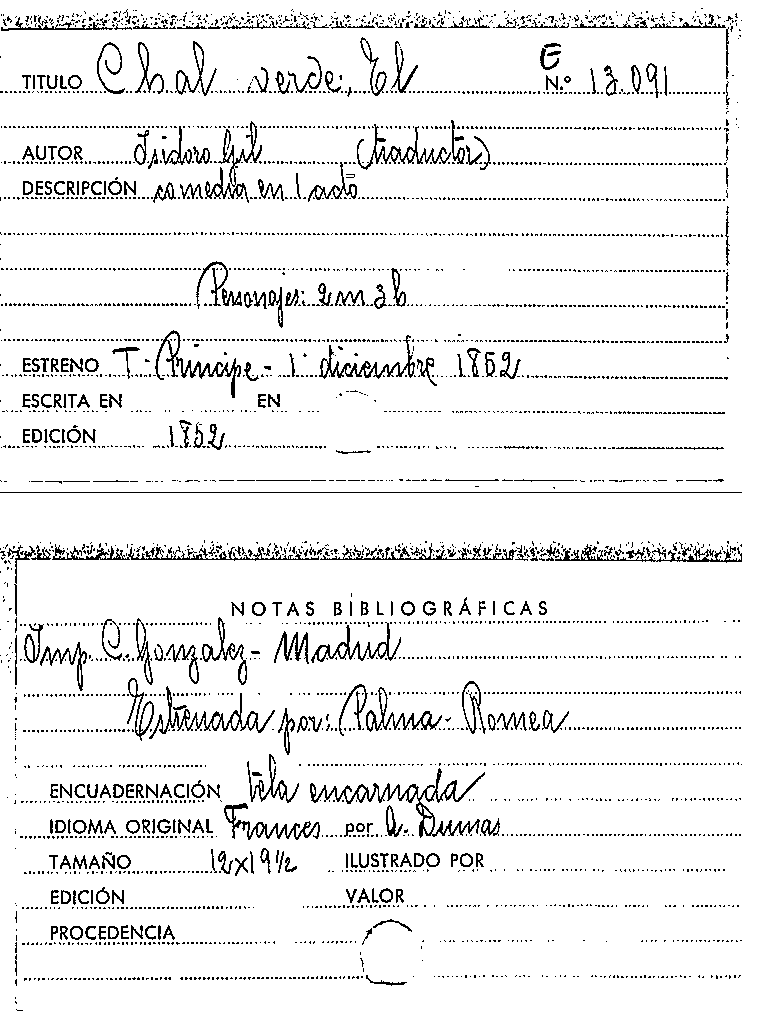 E
TITULO Chal verde, El N.º 13.091
AUTOR Isidoro Gil (traductor)
DESCRIPCIÓN comedia en 1 acto
Personajes: 2 m 3 h
ESTRENO T. Principe - 1º diciembre 1852
ESCRITA EN EN
EDICIÓN 1852
NOTAS BIBLIOGRÁFICAS
Imp. C. Gonzalez - Madrid
Estrenada por: Palma - Romea
ENCUADERNACIÓN tela encarnada
IDIOMA ORIGINAL Frances por A. Dumas
TAMAÑO 12x19 1/2 ILUSTRADO POR
EDICIÓN VALOR
PROCEDENCIA